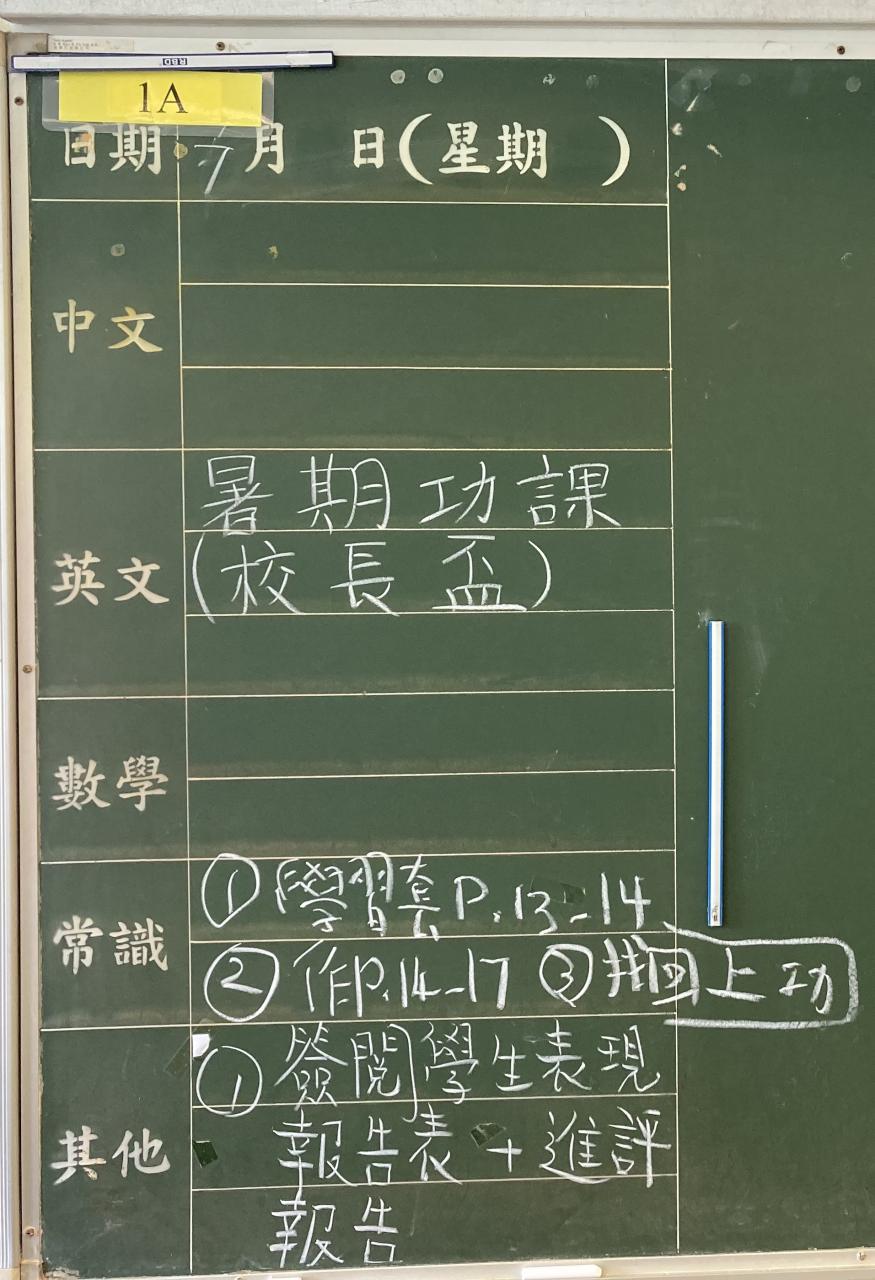 RBD
1A
日期 7月 日(星期 )
中文
英文
暑期功課
(校長盃)
數學
常識
① 學習套 P.13-14
② 作P.14-17 ③找回上功
其他
① 簽閱學生表現
報告表 + 進評
報告